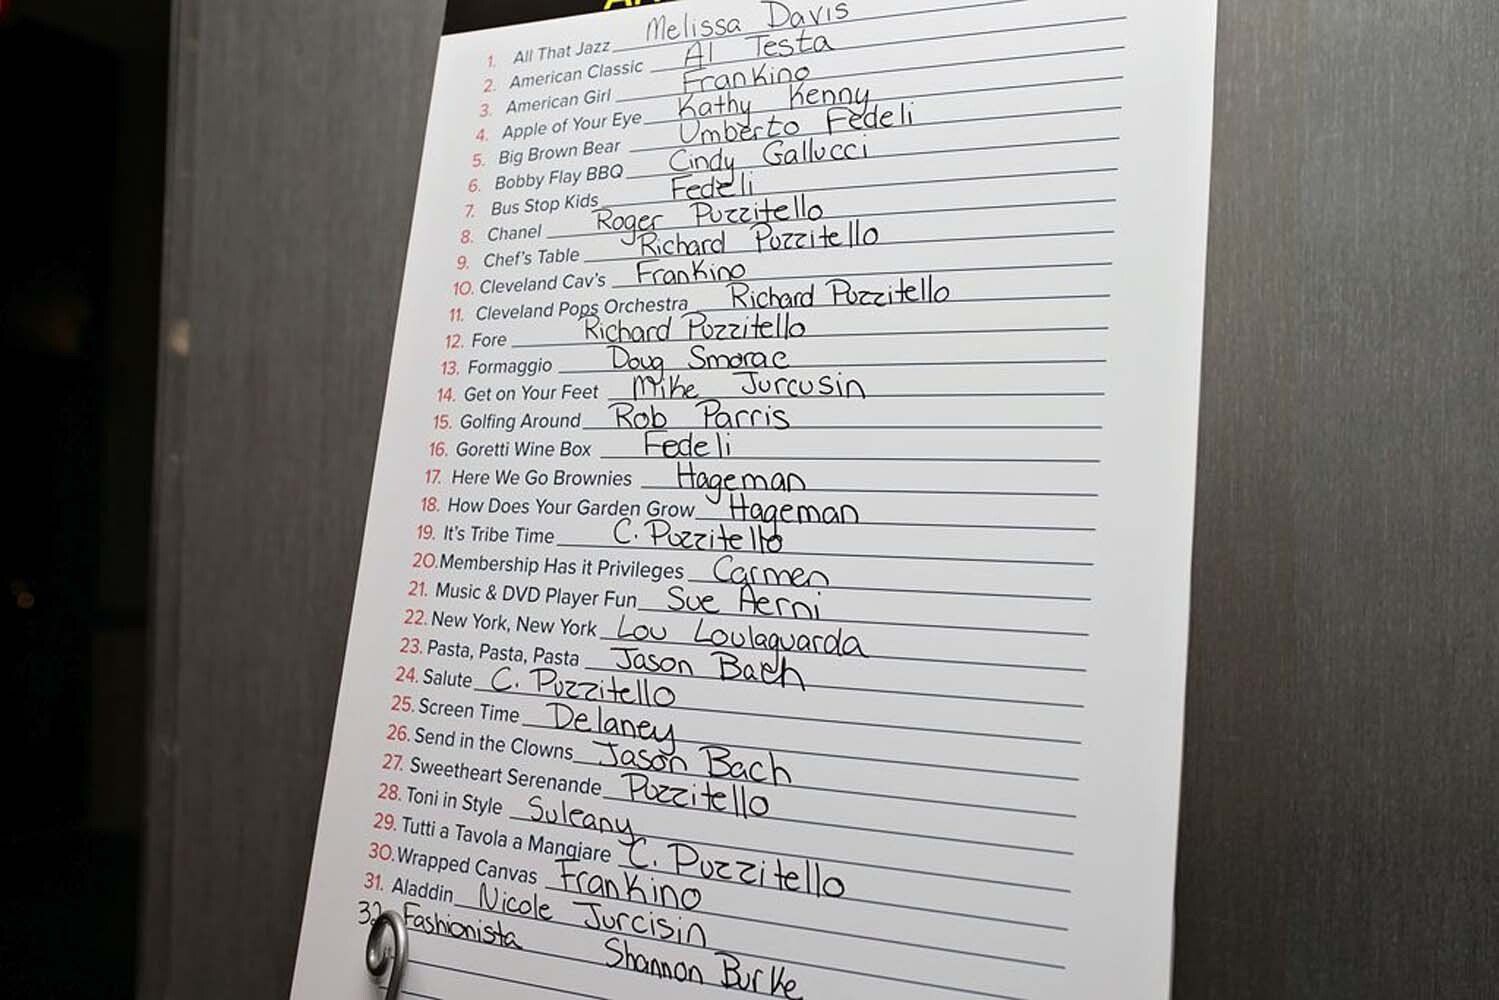 1. All That Jazz Melissa Davis
2. American Classic Al Testa
3. American Girl Frankino
4. Apple of Your Eye Kathy Kenny
5. Big Brown Bear Umberto Fedeli
6. Bobby Flay BBQ Cindy Gallucci
7. Bus Stop Kids Fedeli
8. Chanel Roger Puzzitello
9. Chef's Table Richard Puzzitello
10. Cleveland Cav's Frankino
11. Cleveland Pops Orchestra Richard Puzzitello
12. Fore Richard Puzzitello
13. Formaggio Doug Smorac
14. Get on Your Feet Mike Jurcusin
15. Golfing Around Rob Parris
16. Goretti Wine Box Fedeli
17. Here We Go Brownies Hageman
18. How Does Your Garden Grow Hageman
19. It's Tribe Time C. Puzzitello
20. Membership Has it Privileges Carmen
21. Music & DVD Player Fun Sue Aerni
22. New York, New York Lou Loulaguarda
23. Pasta, Pasta, Pasta Jason Bach
24. Salute C. Puzzitello
25. Screen Time Delaney
26. Send in the Clowns Jason Bach
27. Sweetheart Serenande Puzzitello
28. Toni in Style Suleany
29. Tutti a Tavola a Mangiare C. Puzzitello
30. Wrapped Canvas Frankino
31. Aladdin Nicole Jurcisin
32 Fashionista Shannon Burke